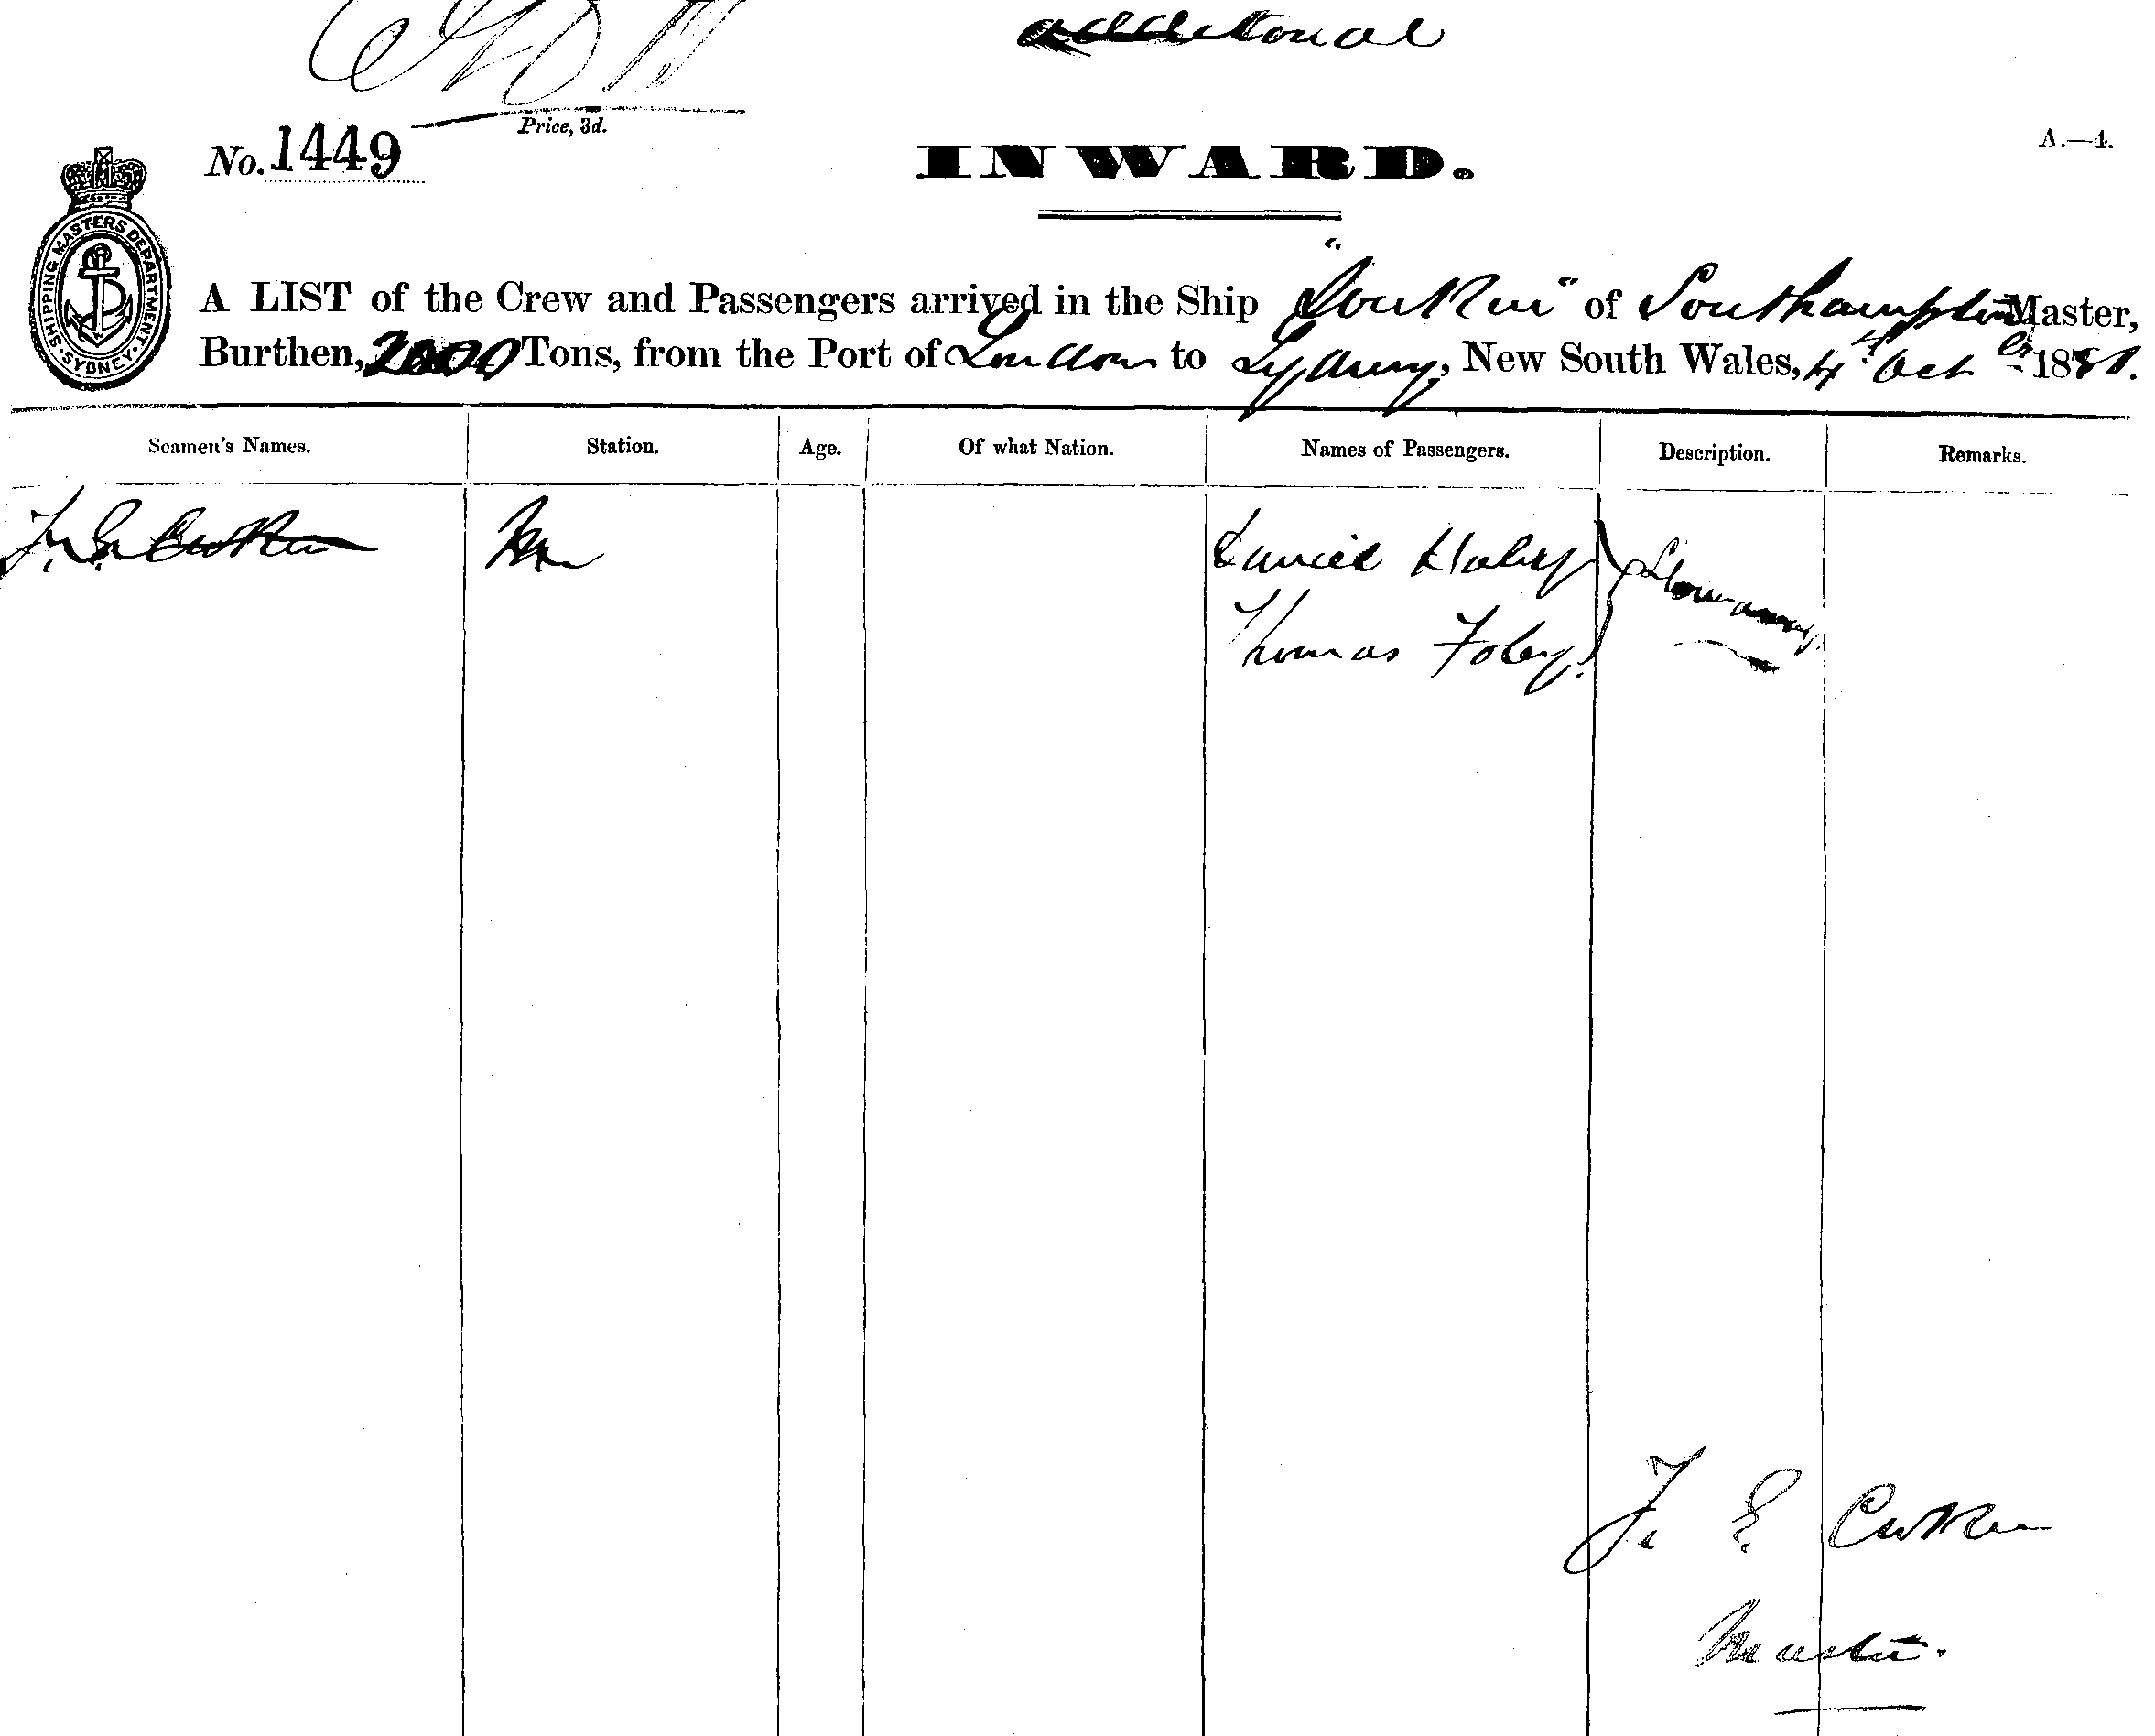 additional
Price, 3d.
No. 1449
INWARD.
A.—4.
SHIPPING MASTERS DEPARTMENT. SYDNEY.
A LIST of the Crew and Passengers arrived in the Ship "Sorkin" of Southampton Master,
Burthen, 2000 Tons, from the Port of London to Sydney, New South Wales, 4th Oct er 1881.
Seamen's Names. Station. Age. Of what Nation. Names of Passengers. Description. Remarks.
F. E. Daniel
Thomas Foley.
F. E.
Master.